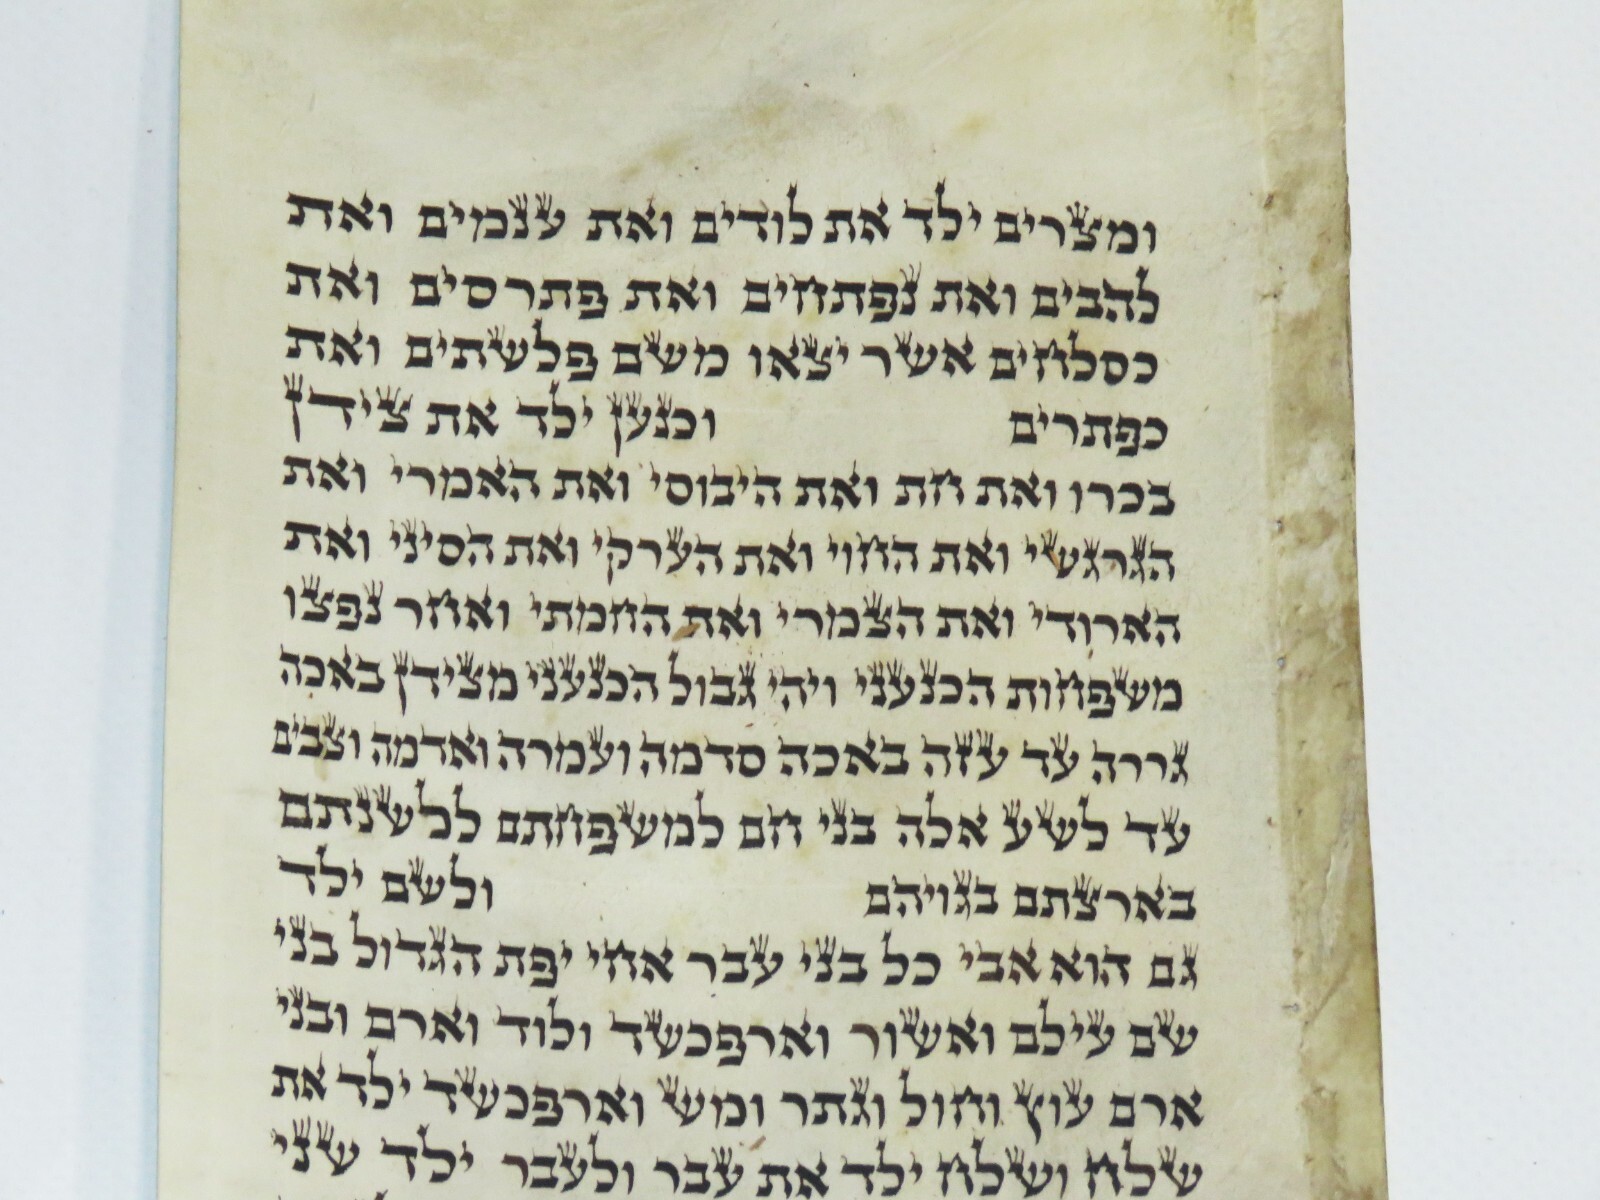 ומצרים ילד את לודים ואת ענמים ואת
להבים ואת נפתחים ואת פתרסים ואת
כסלחים אשר יצאו משם פלשתים ואת
כפתרים וכנען ילד את צידן
בכרו ואת חת ואת היבוסי ואת האמרי ואת
הגרגשי ואת החוי ואת הערקי ואת הסיני ואת
הארודי ואת הצמרי ואת החמתי ואחר נפצו
משפחות הכנעני ויהי גבול הכנעני מצידן באכה
גררה עד עזה באכה סדמה ועמרה ואדמה וצבים
עד לשע אלה בני חם למשפחתם ללשנתם
בארצתם בגויהם ולשם ילד
גם הוא אבי כל בני עבר אחי יפת הגדול בני
שם עילם ואשור וארפכשד ולוד וארם ובני
ארם עוץ וחול וגתר ומש וארפכשד ילד את
שלח ושלח ילד את עבר ולעבר ילד שני